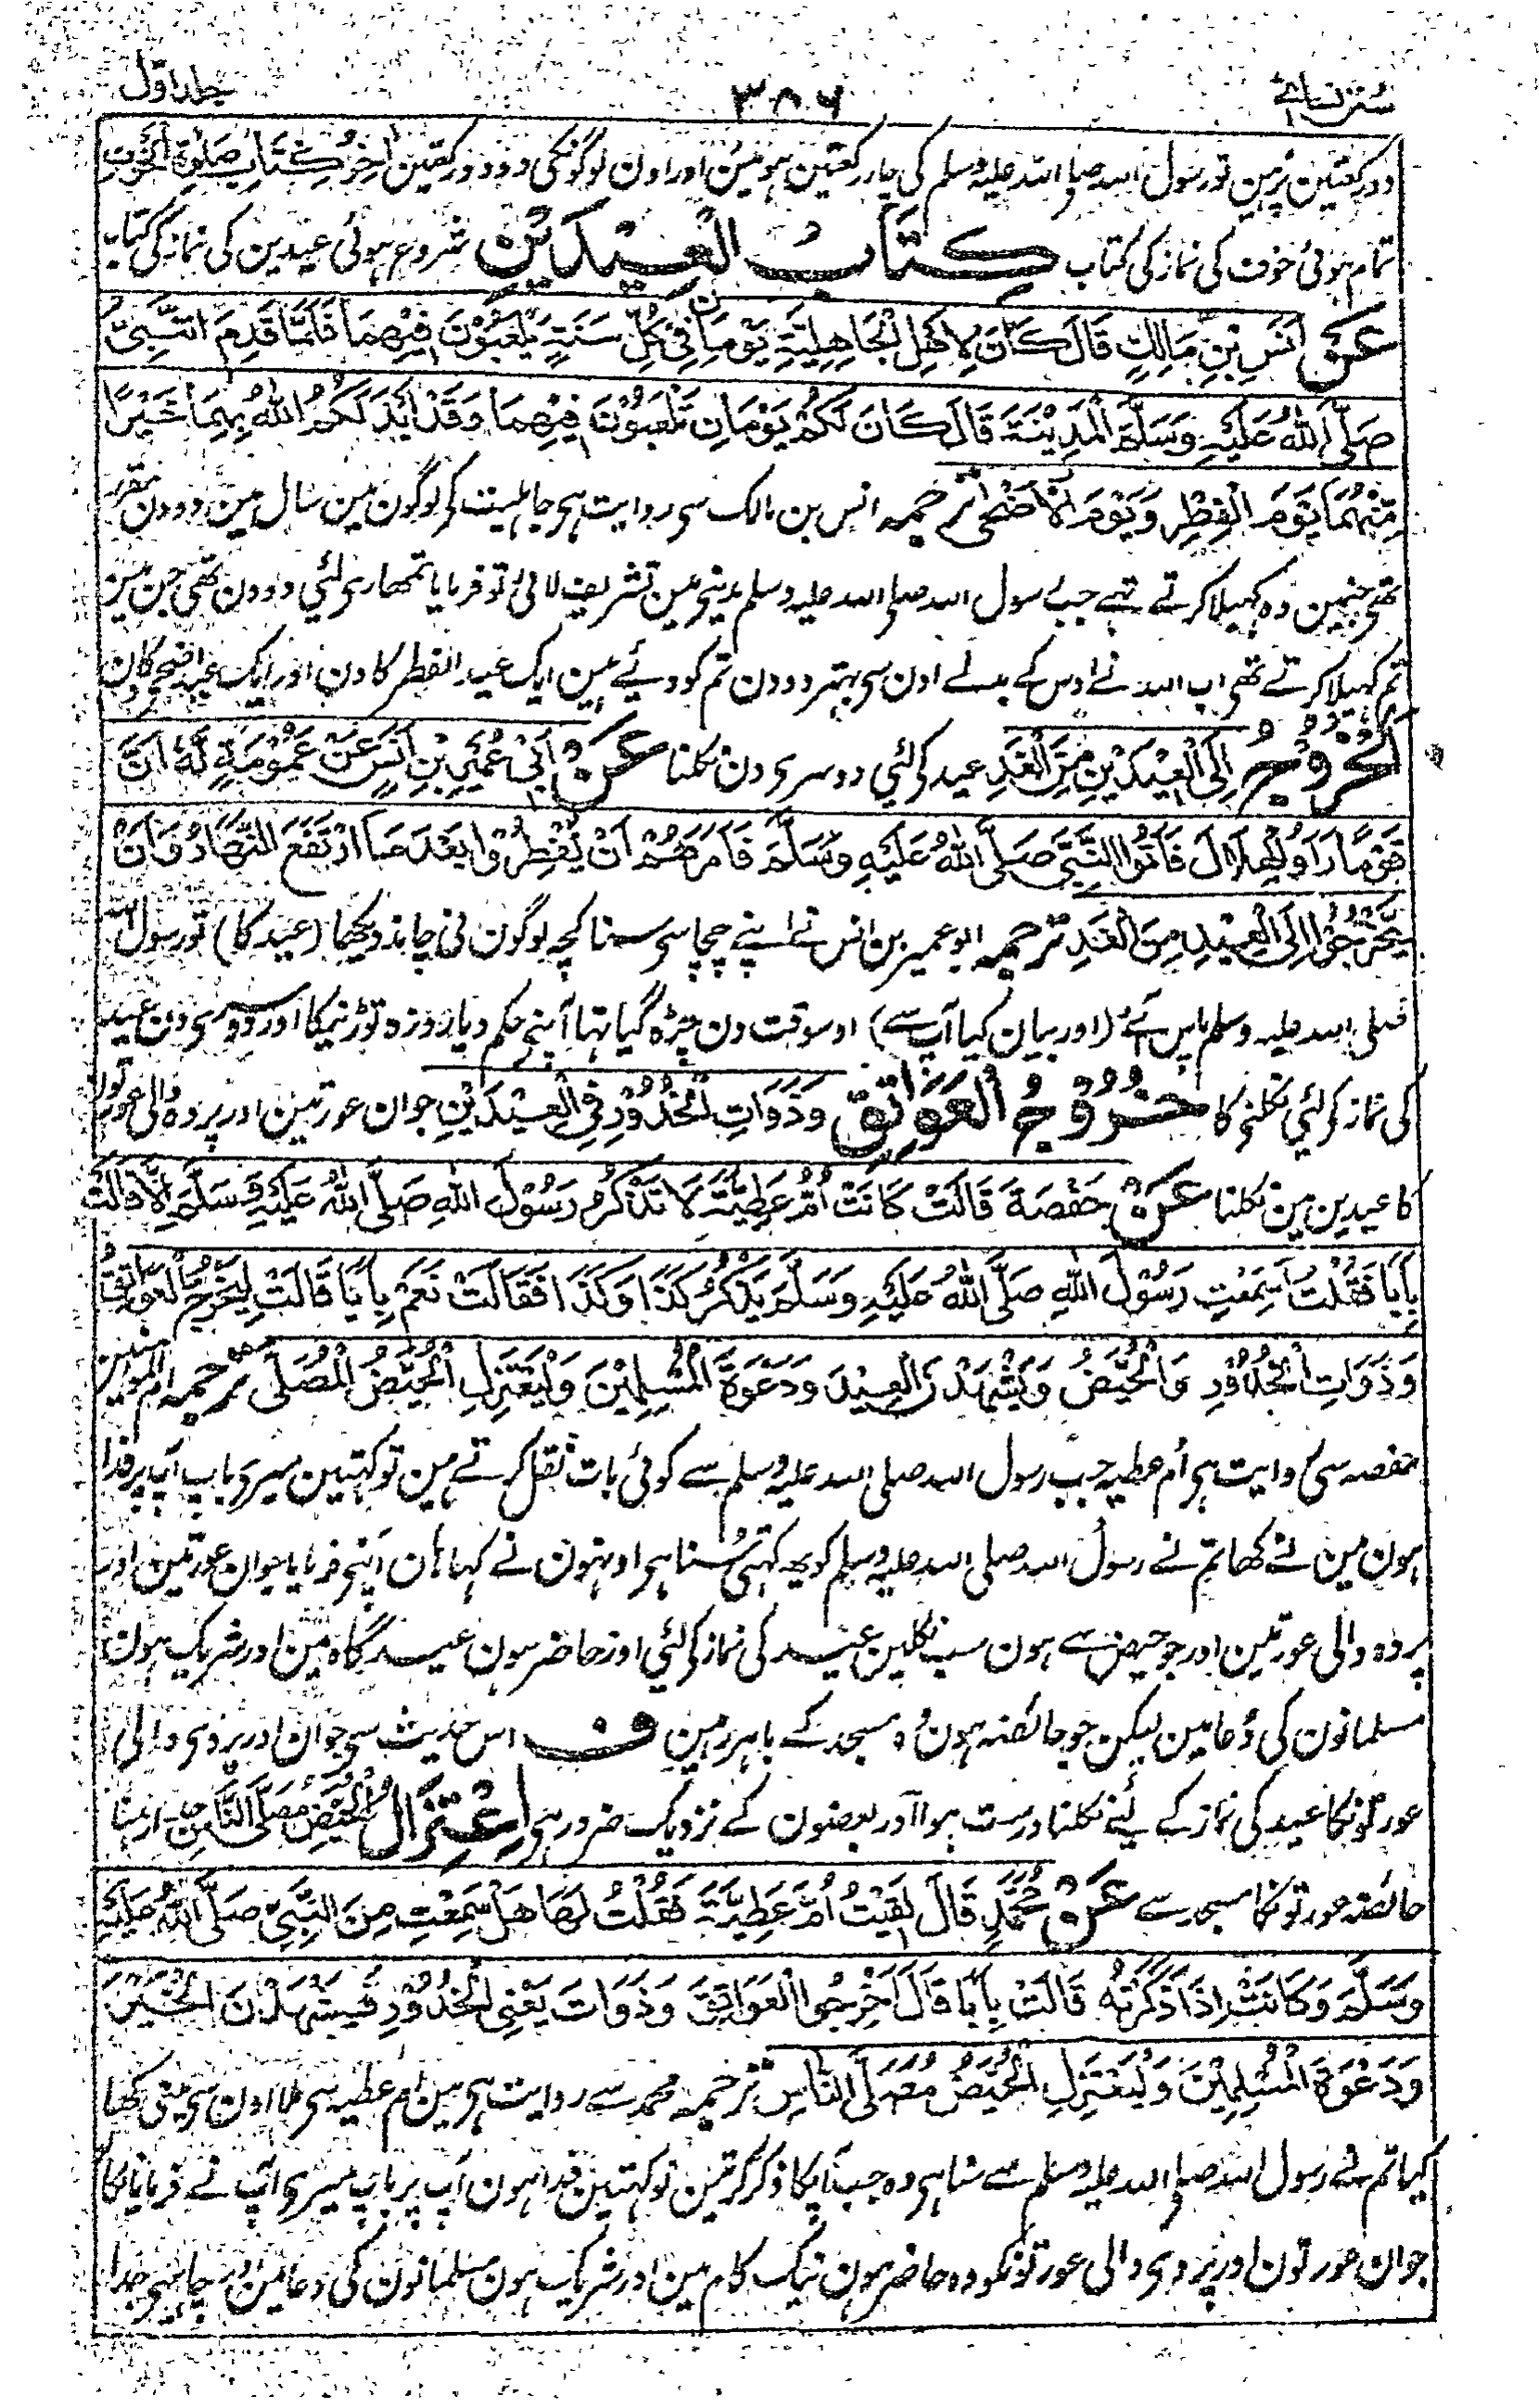 سنن نسائے ۳۸۶ جلد اوّل
دو رکعتین پڑہین تو رسول اللہ صلی اللہ علیہ وسلم کی چار رکعتین ہوئین اور اون لوگونکی دو دو رکعتین اٰخِرُ كِتَابِ صَلٰوةِ الْخَوْفِ
تمام ہوئی خوف کی نماز کی کتاب كِتَابُ الْعِيْدَيْنِ شروع ہوئی عیدین کی نماز کی کتاب
عَنْ اَنَسِ بْنِ مَالِكٍ قَالَ كَانَ لِاَهْلِ الْجَاهِلِيَّةِ يَوْمَانِ فِيْ كُلِّ سَنَةٍ يَلْعَبُوْنَ فِيْهِمَا فَلَمَّا قَدِمَ النَّبِيُّ
صَلَّى اللهُ عَلَيْهِ وَسَلَّمَ الْمَدِيْنَةَ قَالَ كَانَ لَكُمْ يَوْمَانِ تَلْعَبُوْنَ فِيْهِمَا وَقَدْ اَبْدَلَكُمُ اللهُ بِهِمَا خَيْرًا
مِنْهُمَا يَوْمَ الْفِطْرِ وَيَوْمَ الْاَضْحٰى ترجمہ انس بن مالک سی روایت ہی جاہلیت کے لوگون مین سال مین دو دن مقرر
تھی جنہین وہ کہیلا کرتے تہے جب رسول اللہ صلی اللہ علیہ وسلم مدینی مین تشریف لائی تو فرمایا تمھاری لئی دو دن تھی جن مین
تم کہیلا کرتے تھی اب اللہ نے اوس کے بدلے اون سی بہتر دو دن تم کو دیئے ہین ایک عید الفطر کا دن اور ایک عید اضحی کا دن
اَلْخُرُوْجُ اِلَى الْعِيْدَيْنِ مِنَ الْغَدِ عید کے لئی دوسری دن نکلنا عَنْ اَبِيْ عُمَيْرِ بْنِ اَنَسٍ عَنْ عُمُوْمَةٍ لَهٗ اَنَّ
قَوْمًا رَاَوُا الْهِلَالَ فَاَتَوُا النَّبِيَّ صَلَّى اللهُ عَلَيْهِ وَسَلَّمَ فَاَمَرَهُمْ اَنْ يُفْطِرُوْا بَعْدَ مَا ارْتَفَعَ النَّهَارُ وَاَنْ
يَّخْرُجُوْا اِلَى الْعِيْدِ مِنَ الْغَدِ ترجمہ ابو عمیر بن انس نے اپنے چچا سی سنا کچہ لوگون نی چاند دیکھا (عید کا) تو رسول اللہ
صلی اللہ علیہ وسلم پاس آئے (اور بیان کیا آپ سے) اوسوقت دن چڑہ گیا تہا آپنی حکم دیا روزہ توڑنیکا اور دوسری دن عید
کی نماز کے لئی نکلنی کا خُرُوْجُ الْعَوَاتِقِ وَذَوَاتِ الْخُدُوْرِ فِي الْعِيْدَيْنِ جوان عورتین اور پردہ والی عورتون
کا عیدین مین نکلنا عَنْ حَفْصَةَ قَالَتْ كَانَتْ اُمُّ عَطِيَّةَ لَا تَذْكُرُ رَسُوْلَ اللهِ صَلَّى اللهُ عَلَيْهِ وَسَلَّمَ اِلَّا قَالَتْ
بِاَبَا فَقُلْتُ اَسَمِعْتِ رَسُوْلَ اللهِ صَلَّى اللهُ عَلَيْهِ وَسَلَّمَ يَذْكُرُ كَذَا وَكَذَا فَقَالَتْ نَعَمْ بِاَبَا قَالَتْ لِيَخْرُجِ الْعَوَاتِقُ
وَذَوَاتِ الْخُدُوْرِ وَالْحُيَّضُ وَيَشْهَدْنَ الْعِيْدَ وَدَعْوَةَ الْمُسْلِمِيْنَ وَلْيَعْتَزِلِ الْحُيَّضُ الْمُصَلّٰى ترجمہ ام المومنین
حفصہ سی روایت ہی اُم عطیہ جب رسول اللہ صلی اللہ علیہ وسلم سے کوئی بات نقل کرتے ہین تو کہتین میری باپ آپ پر فدا
ہون مین نے کھا تم نے رسول اللہ صلی اللہ علیہ وسلم کو یہ کہتی سُنا ہی اونہون نے کہا ہان آپنی فرمایا جوان عورتین اور
پردہ والی عورتین اور جو حیض سے ہون سب نکلین عید کی نماز کے لئی اور حاضر ہون عید گاہ مین اور شریک ہون
مسلمانون کی دُعا مین لیکن جو حائضہ ہون وہ مسجد کے باہر رہین ف اس حدیث سی جوان اور پردی والی
عورتونکا عید کی نماز کے لئے نکلنا درست ہوا اور بعضون کے نزدیک ضرور ہی اِعْتِزَالُ الْحُيَّضِ مُصَلَّى النَّاسِ جدا رہنا
حائضہ عورتونکا مسجد سے عَنْ مُحَمَّدٍ قَالَ لَقِيْتُ اُمَّ عَطِيَّةَ فَقُلْتُ لَهَا هَلْ سَمِعْتِ مِنَ النَّبِيِّ صَلَّى اللهُ عَلَيْهِ
وَسَلَّمَ وَكَانَتْ اِذَا ذَكَرَتْهُ قَالَتْ بِاَبَا قَالَ اَخْرِجُوا الْعَوَاتِقَ وَذَوَاتَ يَعْنِي الْخُدُوْرِ فَيَشْهَدْنَ الْخَيْرَ
وَدَعْوَةَ الْمُسْلِمِيْنَ وَلْيَعْتَزِلِ الْحُيَّضُ مُصَلَّى النَّاسِ ترجمہ محمد سے روایت ہی مین ام عطیہ سی ملا اون سی مینی کھا
کیا تم نے رسول اللہ صلی اللہ علیہ وسلم سے سنا ہی وہ جب آپکا ذکر کرتین تو کہتین فدا ہون آپ پر باپ میری آپ نے فرمایا نکالو
جوان عورتون اور پردی والی عورتونکو وہ حاضر ہون نیک کام مین اور شریک ہون مسلمانون کی دعا مین اور چاہئے جدا